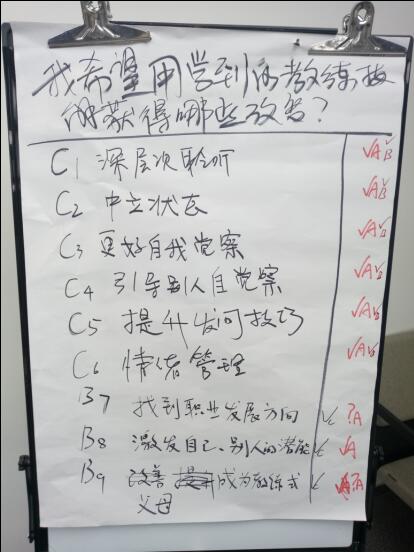 我希望用学到的教练技
能获得哪些改善?
C1 深层次聆听 √A B
C2 中立状态 √A B
C3 更好自我觉察 √A B
C4 引导别人自觉察 √A B
C5 提升发问技巧 √A B
C6 情绪管理 √A B
B7 找到职业发展方向 √ ?A
B8 激发自己、别人的潜能 √ √A
B9 改善 提升 成为教练式 √ A
父母